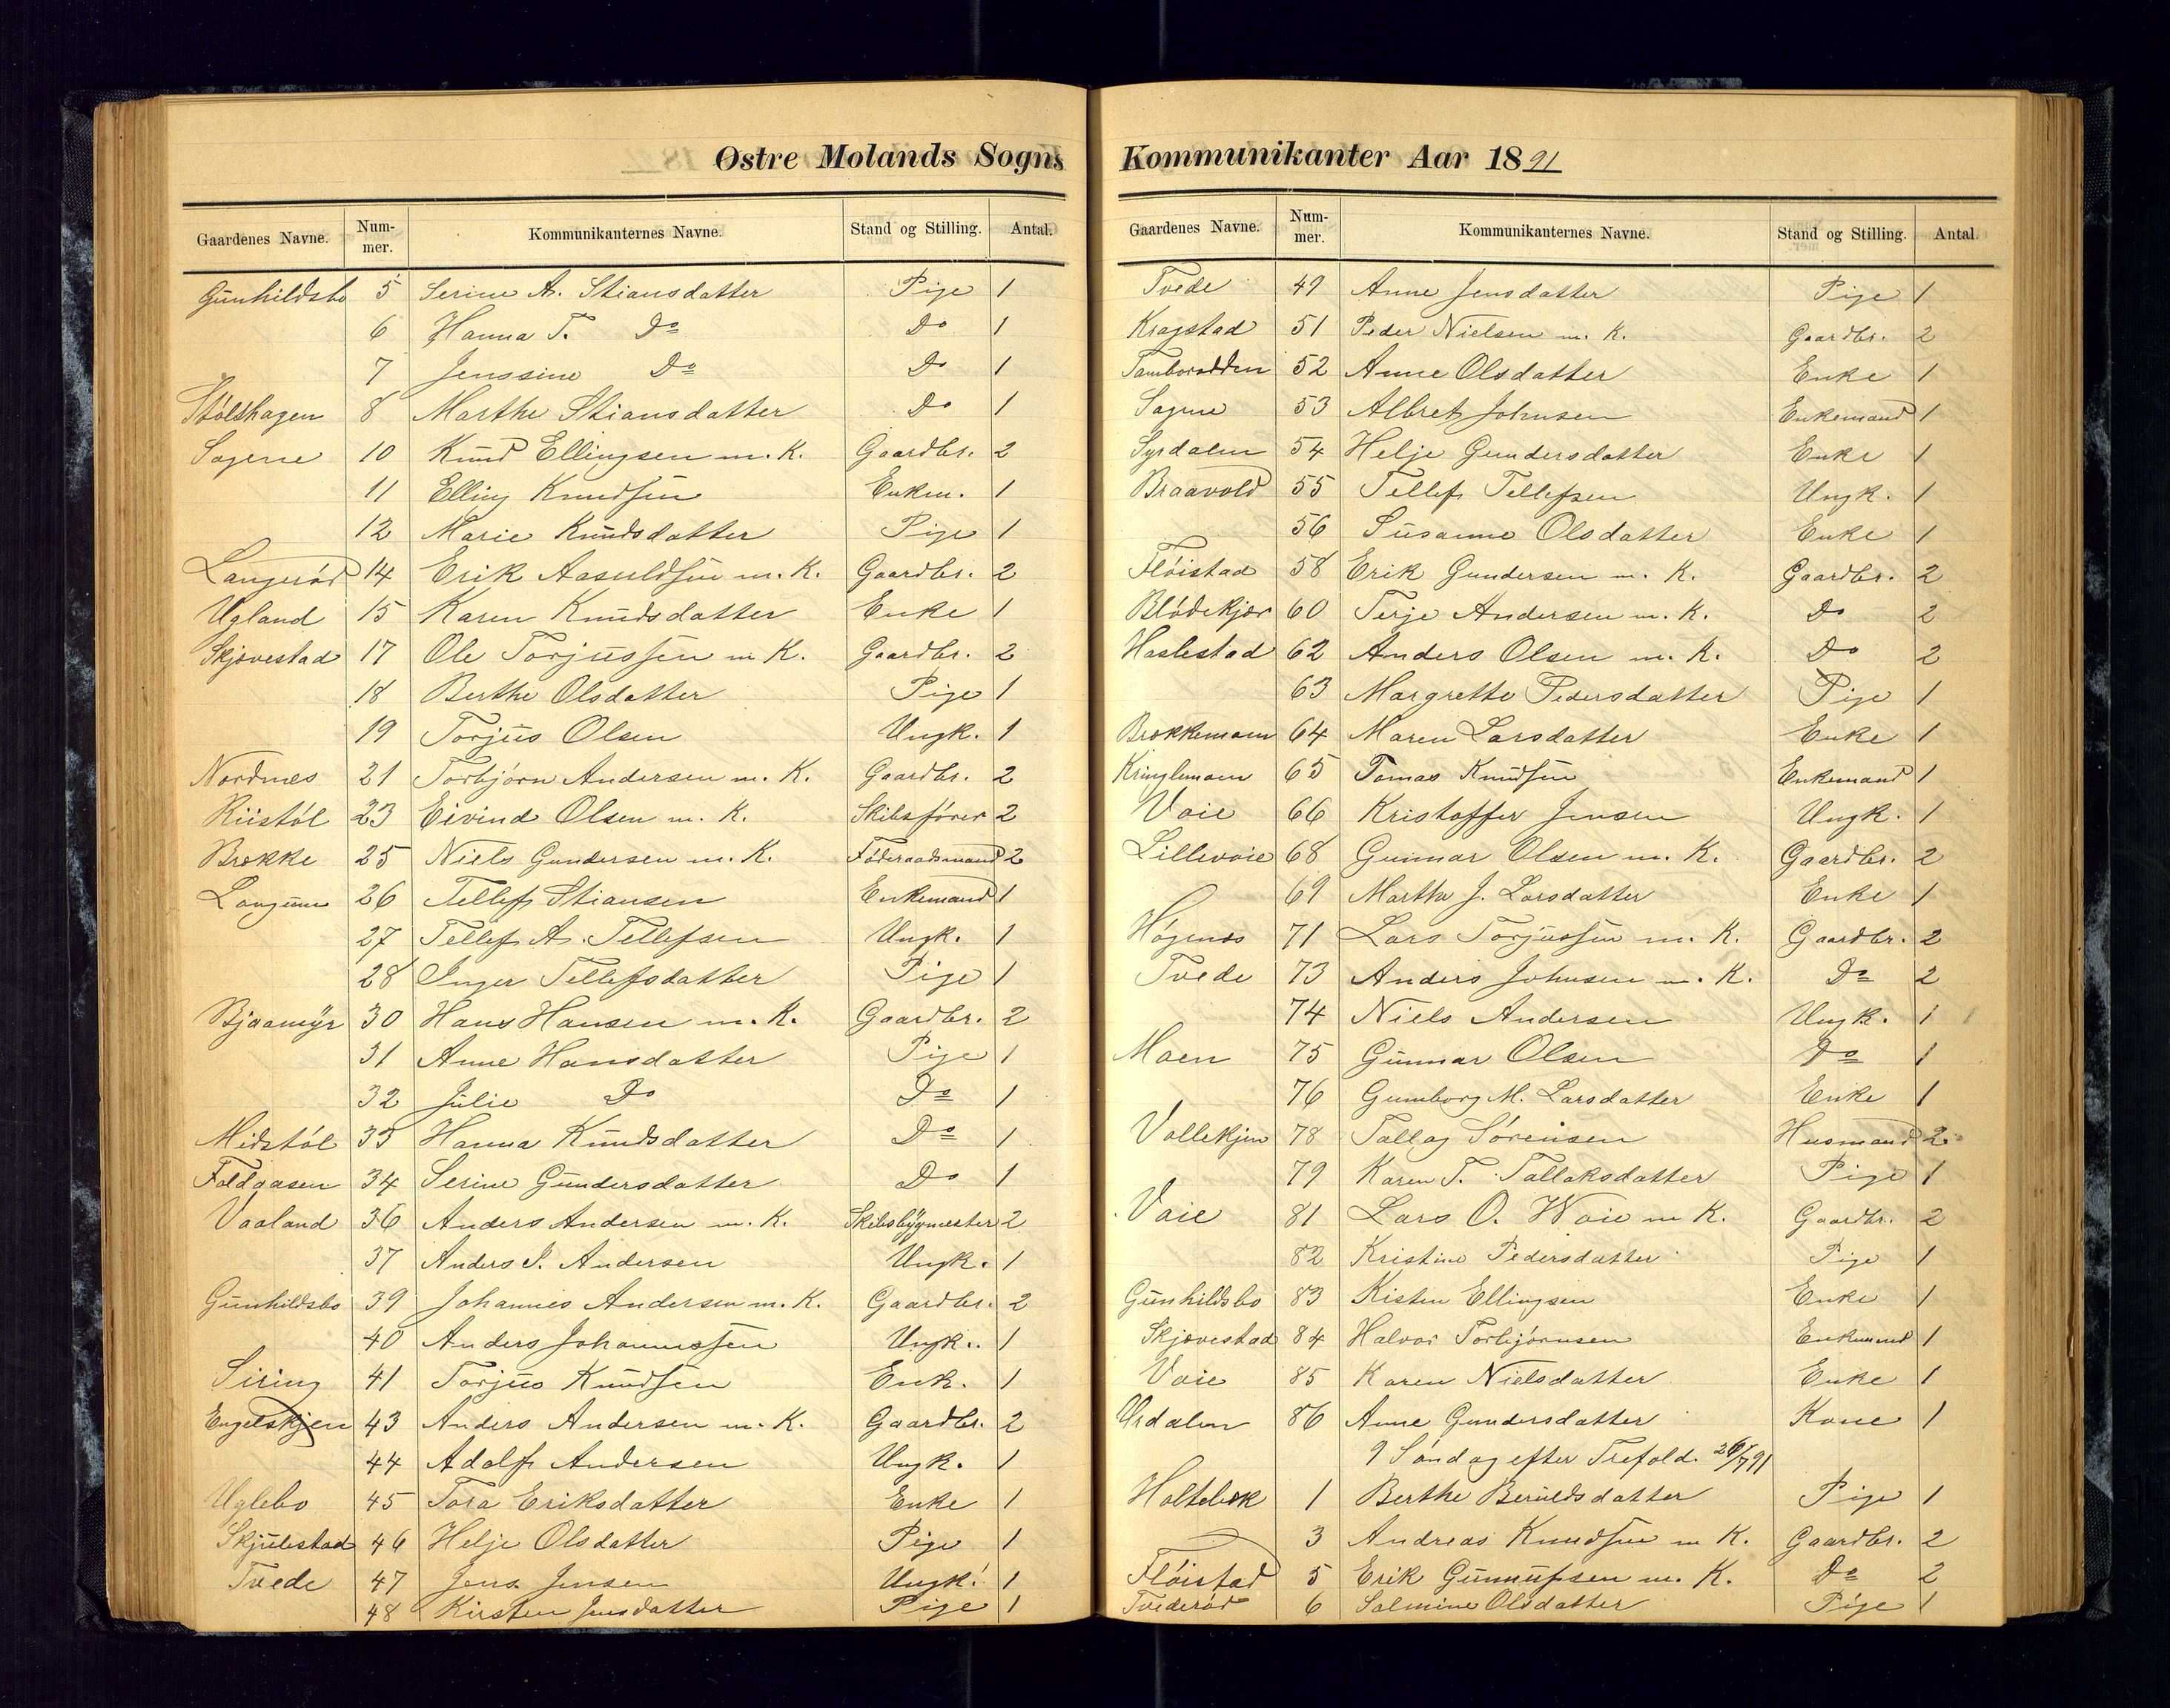 Østre Molands Sogns
Gaardenes Navne. Num-mer. Kommunikanternes Navne. Stand og Stilling. Antal.
Gunhildsbo 5 Serine A. Stiansdatter Pige 1
6 Hanna T. Do Do 1
7 Jenssine Do Do 1
Stølshagen 8 Marthe Stiansdatter Do 1
Sagene 10 Knud Ellingsen m. K. Gaardbr. 2
11 Elling Knudsen Enkm. 1
12 Marie Knudsdatter Pige 1
Langerød 14 Erik Aasuldsen m. K. Gaardbr. 2
Ugland 15 Karen Knudsdatter Enke 1
Skjævestad 17 Ole Torjussen m K. Gaardbr. 2
18 Berthe Olsdatter Pige 1
19 Torjus Olsen Ungk. 1
Nordnes 21 Torbjørn Andersen m. K. Gaardbr. 2
Riistøl 23 Eivind Olsen m. K. Skibsfører 2
Brække 25 Niels Gundersen m. K. Føderaadsmand 2
Langum 26 Tellef Stiansen Enkemand 1
27 Tellef A. Tellefsen Ungk. 1
28 Inger Tellefsdatter Pige 1
Bjaamyr 30 Hans Hansen m. K. Gaardbr. 2
31 Anne Hansdatter Pige 1
32 Julie Do Do 1
Midstøl 33 Hanna Knudsdatter Do 1
Foldaasen 34 Serine Gundersdatter Do 1
Vaaland 36 Anders Andersen m. K. Skibsbygmester 2
37 Anders S. Andersen Ungk. 1
Gunhildsbo 39 Johannes Andersen m. K. Gaardbr. 2
40 Anders Johannessen Ungk. 1
Siring 41 Torjus Knudsen Enk. 1
Engelskjen 43 Anders Andersen m. K. Gaardbr. 2
44 Adolf Andersen Ungk. 1
Uglebo 45 Tora Eriksdatter Enke 1
Skjulestad 46 Helje Olsdatter Pige 1
Tvede 47 Jens Jensen Ungk. 1
48 Kirsten Jensdatter Pige 1
Kommunikanter Aar 1891
Gaardenes Navne. Num-mer. Kommunikanternes Navne. Stand og Stilling. Antal.
Tvede 49 Anne Jensdatter Pige 1
Kragstad 51 Peder Nielsen m. K. Gaardbr. 2
52 Anne Olsdatter Enke 1
Sagene 53 Albret Johnsen Enkemand 1
Syrdalen 54 Helje Gundersdatter Enke 1
Braavold 55 Tellef Tellefsen Ungk. 1
56 Susanne Olsdatter Enke 1
Fløistad 58 Erik Gundersen m. K. Gaardbr. 2
Blødekjær 60 Terje Andersen m. K. Do 2
Haslestad 62 Anders Olsen m. K. Do 2
63 Margrethe Pedersdatter Pige 1
Brækkemoen 64 Maren Larsdatter Enke 1
Kringlemoen 65 Tomas Knudsen Enkemand 1
Vaie 66 Kristoffer Jensen Ungk. 1
Lillevaie 68 Gunnar Olsen m. K. Gaardbr. 2
69 Marthe J. Larsdatter Enke 1
Høgenes 71 Lars Torjussen m. K. Gaardbr. 2
Tvede 73 Anders Johnsen m. K. Do 2
74 Niels Andersen Ungk. 1
Moen 75 Gunnar Olsen Do 1
76 Gunnborg M. Larsdatter Enke 1
Vollekjen 78 Tallag Sørensen Husmand 2
79 Karen T. Tallaksdatter Pige 1
Vaie 81 Lars O. Waie m K. Gaardbr. 2
82 Kristine Pedersdatter Pige 1
Gunhildsbo 83 Kisten Ellingsen Enke 1
Skjævestad 84 Halvor Torbjørnsen Enkemand 1
Vaie 85 Karen Nielsdatter Enke 1
Urdalen 86 Anne Gundersdatter Kone 1
9 Søndag efter Trefold. 26/7 91
Holtebæk 1 Berthe Beruldsdatter Pige 1
3 Andreas Knudsen m K. Gaardbr. 2
Fløistad 5 Erik Gunnufsen m. K. Do 2
Tvederød 6 Salmine Olsdatter Pige 1